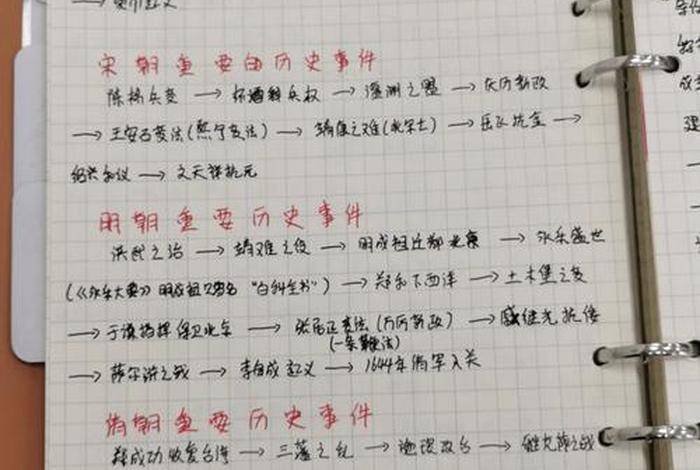 宋朝重要的历史事件
陈桥兵变 → 杯酒释兵权 → 澶渊之盟 → 庆历新政
→ 王安石变法(熙宁变法) → 靖康之难(北宋亡) → 岳飞抗金 →
绍兴和议 → 文天祥抗元
明朝重要历史事件
洪武之治 → 靖难之役 → 明成祖迁都北京 → 永乐盛世
(《永乐大典》明成祖 "百科全书") → 郑和下西洋 → 土木堡之变
→ 于谦指挥保卫北京 → 张居正变法(万历新政) → 戚继光抗倭
(一条鞭法)
→ 萨尔浒之战 → 李自成起义 → 1644年清军入关
清朝重要历史事件
郑成功收复台湾 → 三藩之乱 → →